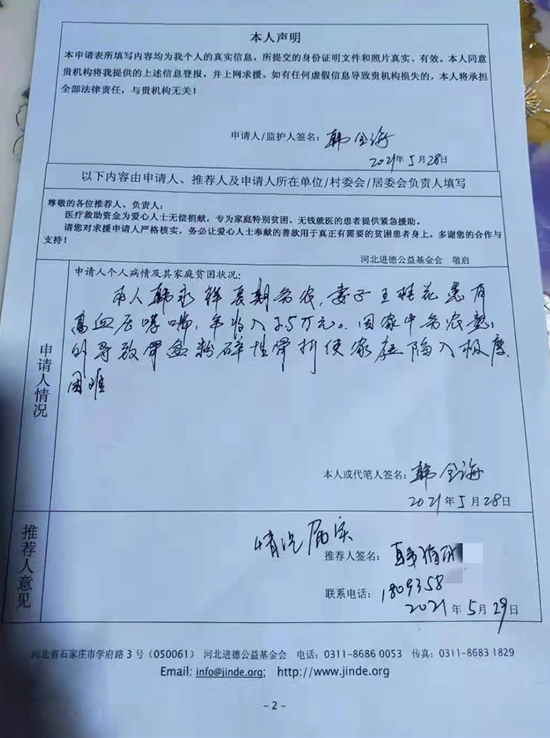 本人声明
本申请表所填写内容均为我个人的真实信息，所提交的身份证明文件和照片真实、有效。本人同意
贵机构将我提供的上述信息登报，并上网求援。如有任何虚假信息导致贵机构损失的，本人将承担
全部法律责任，与贵机构无关！
申请人/监护人签名：韩全海
2021年5月28日
以下内容由申请人、推荐人及申请人所在单位/村委会/居委会负责人填写
尊敬的各位推荐人、负责人：
医疗救助资金为爱心人士无偿捐献，专为家庭特别贫困、无钱就医的患者提供紧急援助。
请您对求援申请人严格核实，务必让爱心人士奉献的善款用于真正有需要的贫困患者身上。多谢您的合作与
支持！
河北进德公益基金会 敬启
申请人情况
申请人个人病情及其家庭贫困状况：
本人韩永祥長期务农，妻子王桂花患有
高血压哮喘，年收入2.5万元。因家中务农意
外导致骨盆粉碎性骨折使家庭陷入极度
困难
本人或代笔人签名：韩全海
2021年5月28日
推荐人意见
情况属实
推荐人签名：韩
联系电话：1809358
2021年5月29日
河北省石家庄市学府路3号（050061） 河北进德公益基金会 电话：0311-8686 0053 传真：0311-8683 1829
Email: info@jinde.org; http://www.jinde.org
- 2 -